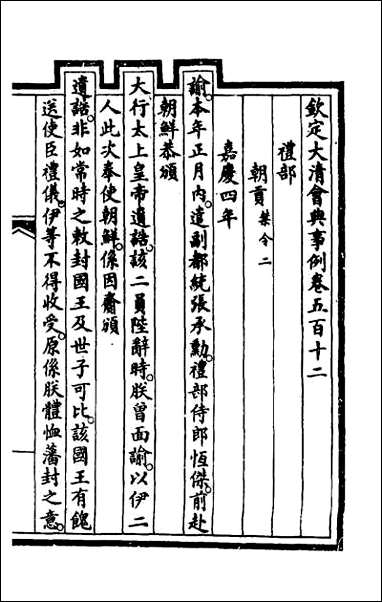 欽定大清會典事例卷五百十二
禮部
朝貢禁令二
嘉慶四年
諭。本年正月內。遣副都統張承勳。禮部侍郎恆傑。前赴
朝鮮恭頒
大行太上皇帝遺誥。該二員陛辭時。朕曾面諭。以伊二
人此次奉使朝鮮。係因齎頒
遺誥。非如常時之敕封國王及世子可比。該國王有餽
送使臣禮儀。伊等不得收受。原係朕體恤藩封之意。